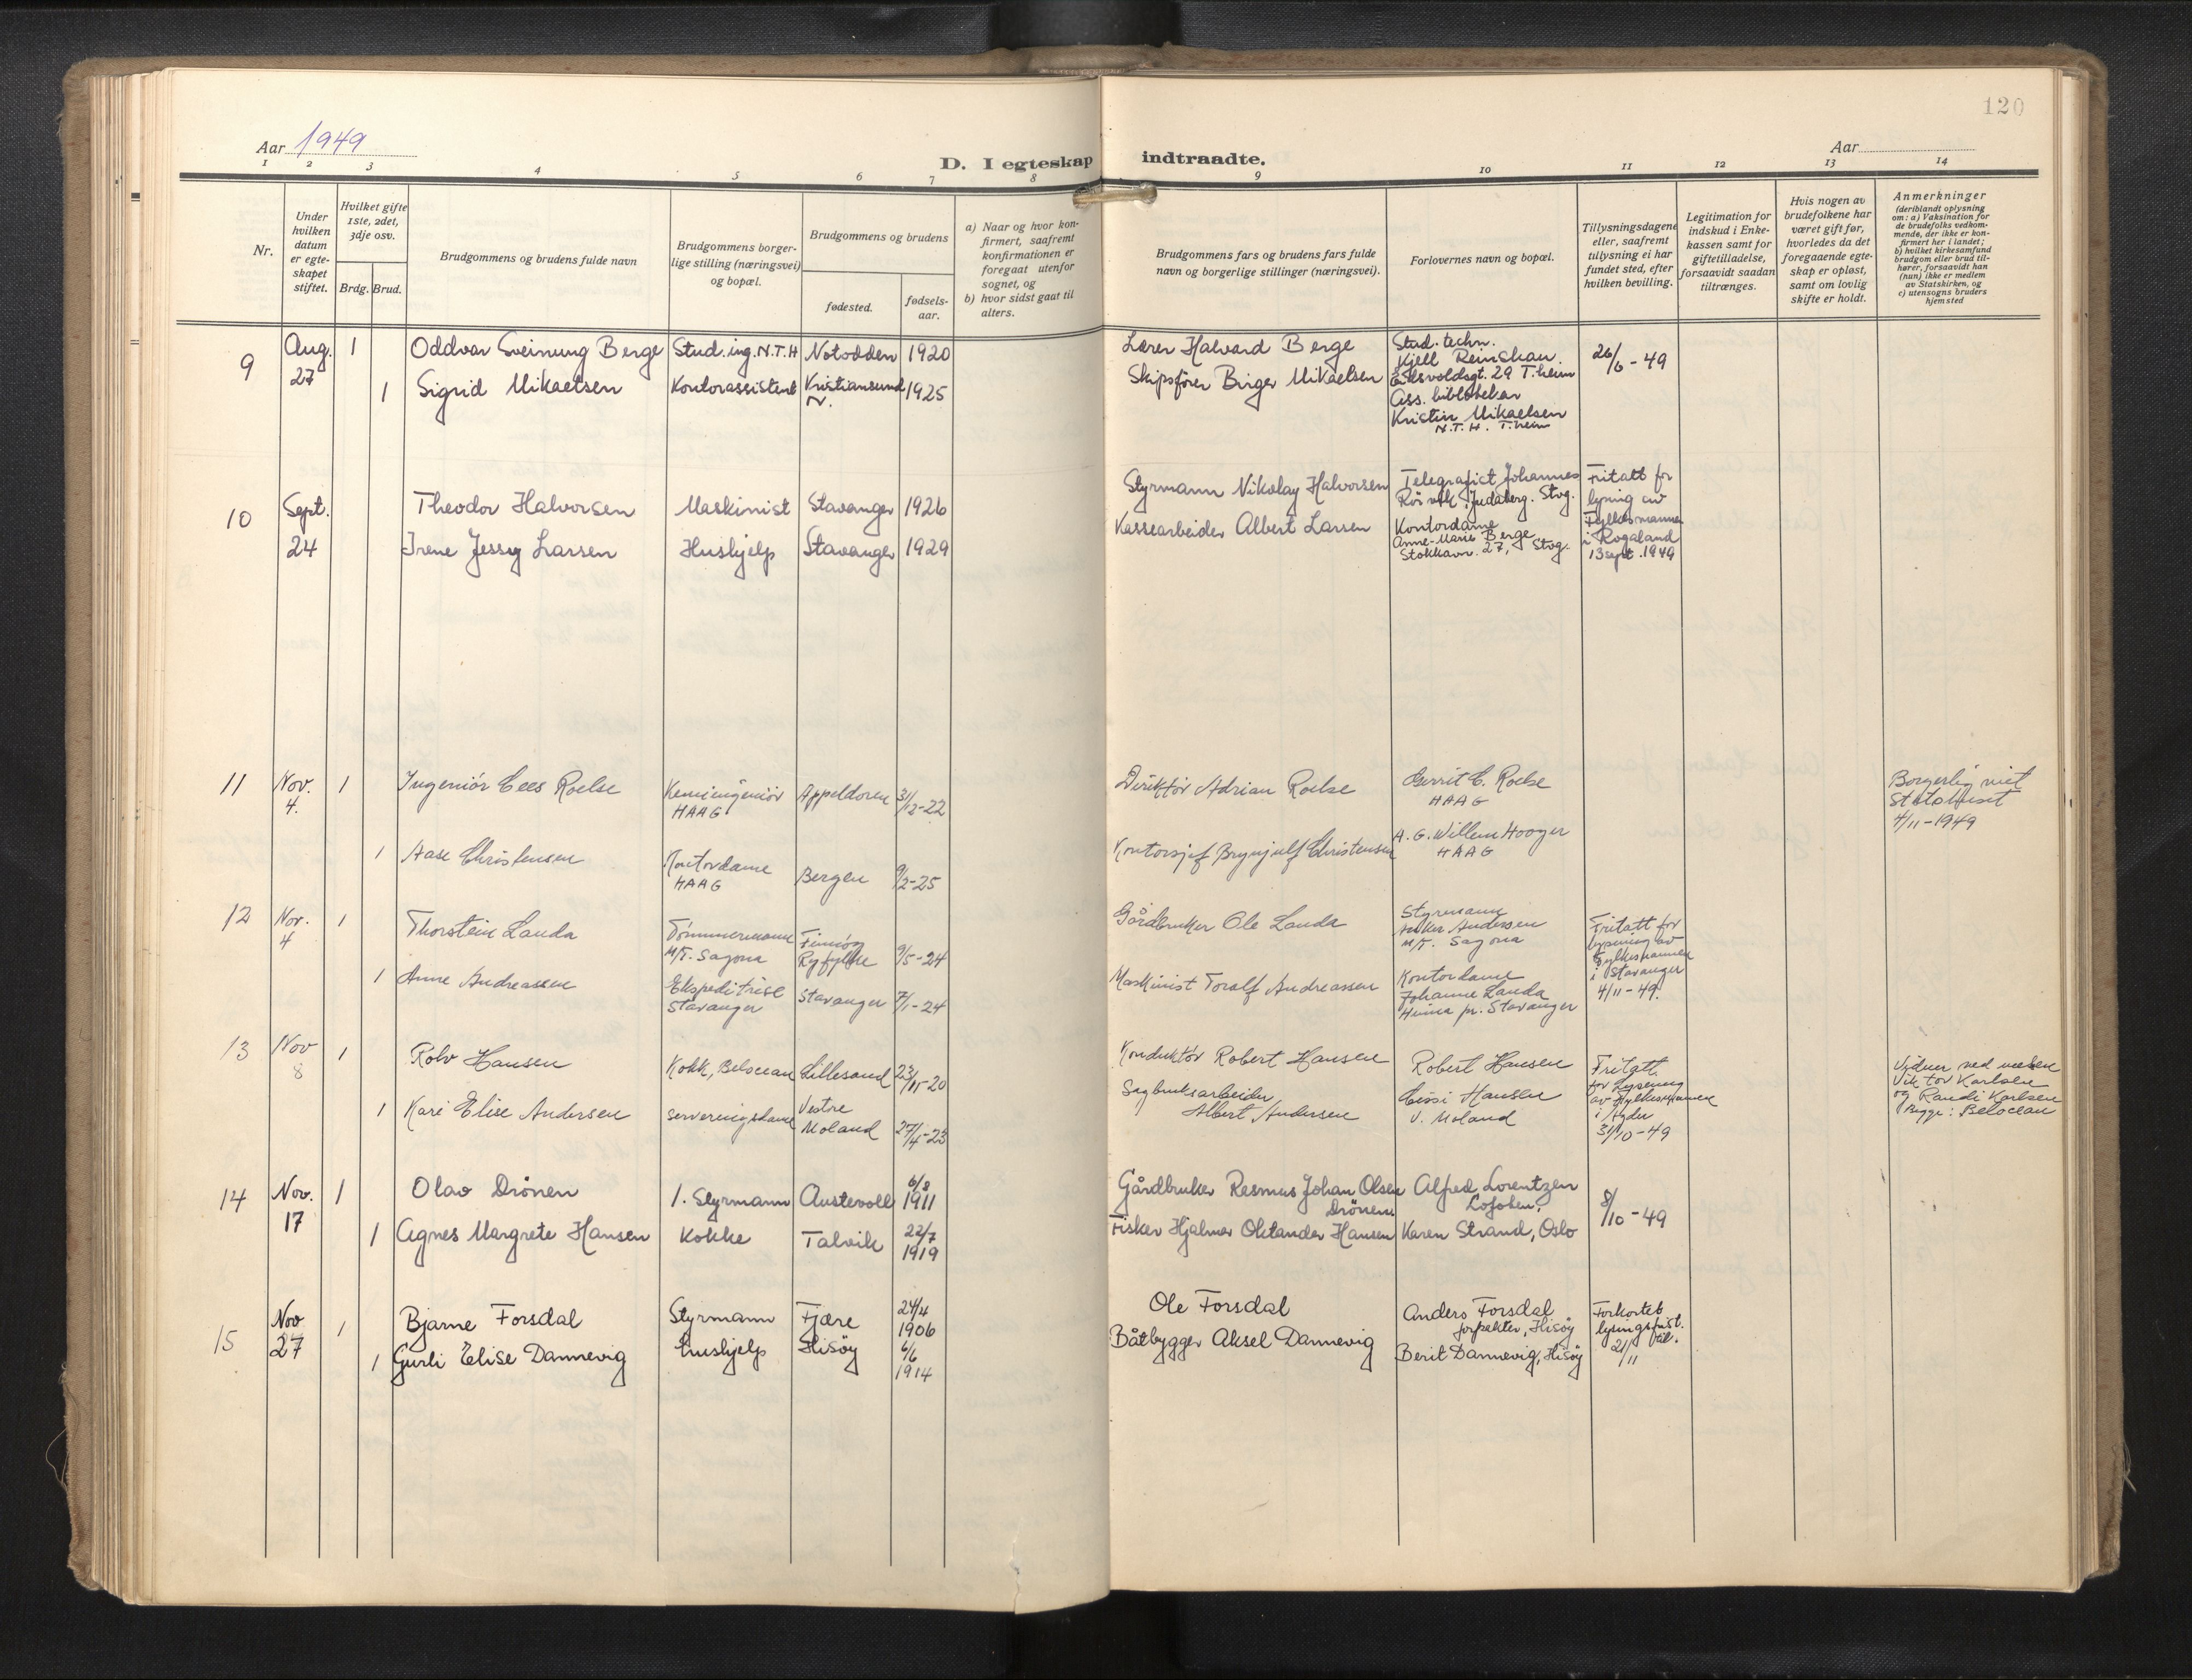 120
Aar 1949
Aar
D. I egteskap indtraadte.
1 2 3 4 5 6 7 8 9 10 11 12 13 14
Nr.
Under
hvilken
datum
er egte-
skapet
stiftet.
Hvilket gifte
1ste, 2det,
3dje osv.
Brdg. Brud.
Brudgommens og brudens fulde navn
Brudgommens borger-
lige stilling (næringsvei)
og bopæl.
Brudgommens og brudens
fødested.
fødsels-
aar.
a) Naar og hvor kon-
firmert, saafremt
konfirmationen er
foregaat utenfor
sognet, og
b) hvor sidst gaat til
alters.
Brudgommens fars og brudens fars fulde
navn og borgerlige stillinger (næringsvei).
Forlovernes navn og bopæl.
Tillysningsdagene
eller, saafremt
tillysning ei har
fundet sted, efter
hvilken bevilling.
Legitimation for
indskud i Enke-
kassen samt for
giftetilladelse,
forsaavidt saadan
tiltrænges.
Hvis nogen av
brudefolkene har
været gift før,
hvorledes da det
foregaaende egte-
skap er opløst,
samt om lovlig
skifte er holdt.
Anmerkninger
(deriblandt oplysning
om: a) Vaksination for
de brudefolks vedkom-
mende, der ikke er kon-
firmert her i landet;
b) hvilket kirkesamfund
brudgom eller brud til-
hører, forsaavidt han
(hun) ikke er medlem
av Statskirken, og
c) utensogns bruders
hjemsted
9
Aug.
27
1
Oddvar Sveinung Berge
Stud. ing. N.T.H
Notodden
1920
1
Sigrid Mikaelsen
Kontorassistent
Kristiansund
N.
1925
Lærer Halvard Berge
Skipsfører Birger Mikaelsen
Stud. techn.
Kjell Reinskau.
Eidsvoldsgt. 29 T.heim
Ass. bibliotekar
Kristin Mikaelsen
N.T.H. T.heim
26/6 - 49
10
Sept.
24
Theodor Halvorsen
Maskinist
Stavanger
1926
Irene Jessy Larsen
Hushjelp
Stavanger
1929
Styrmann Nikolay Halvorsen
Kassearbeider Albert Larsen
Telegrafist Johannes
Judaberg. Stvg.
Kontordame
Anne-Marie Berge
Stokkavn. 27, Stvg.
Fritatt for
lysing av
Fylkesmannen
i Rogaland
13 sept. 1949
11
Nov.
4.
1
Ingeniör Cees Roelse
Kemiingeniör
HAAG
Appeldoren
31/12-22
1
Aase Christensen
Kontordame
HAAG
Bergen
9/2-25
Direktör Adrian Roelse
Kontorsjef Brynjulf Christensen
Gerrit C. Roelse
HAAG
A. G. Willem Hooger
HAAG
Borgerlig viet
Stadhuset
4/11-1949
12
Nov.
4
1
Thorstein Landa
Tömmermann
M/T. Sagona
Finnöy
Ryfylke
9/5-24
1
Anne Andreassen
Ekspeditrise
Stavanger
Stavanger
7/1-24
Gårdbruker Ole Landa
Maskinist Toralf Andreassen
Styrmann
Anker Andersen
M/T. Sagona
Kontordame
Johanne Landa
Hinna pr. Stavanger
Fritatt for
lysning av
Fylkesmannen
i Stavanger
4/11-49.
13
Nov
8
1
Rolv Hansen
Kokk, Belocean
Lillesand
23/11-20
1
Kari Elise Andersen
serveringsdame
Vestre
Moland
27/4-23
Konduktör Robert Hansen
Sagbruksarbeider
Albert Andersen
Robert Hansen
Cissi Hansen
V. Moland
Fritatt
for lysning
av fylkesmannen
i Agder
31/10-49
Vidner ved vielsen
Viktor Karlsen
og Randi Karlsen
Begge: Belocean
14
Nov.
17
1
Olav Drönen
1. Styrmann
Austevoll
6/8
1911
1
Agnes Margrete Hansen
Kokke
Talvik
22/7
1919
Gårdbruker Rasmus Johan Olsen
Drönen
Fisker Hjalmar Oktander Hansen
Alfred Lorentzen
Lofoten,
Karen Strand, Oslo
8/10 - 49
15
Nov
27
1
Bjarne Forsdal
Styrmann
Fjære
24/4
1906
1
Gurli Elise Dannevig
Hushjelp
Hisöy
6/6
1914
Ole Forsdal
Båtbygger Aksel Dannevig
Anders Forsdal
forpakter, Hisöy
Berit Dannevig, Hisöy
Forkortet
lysingsfrist.
til.
21/11